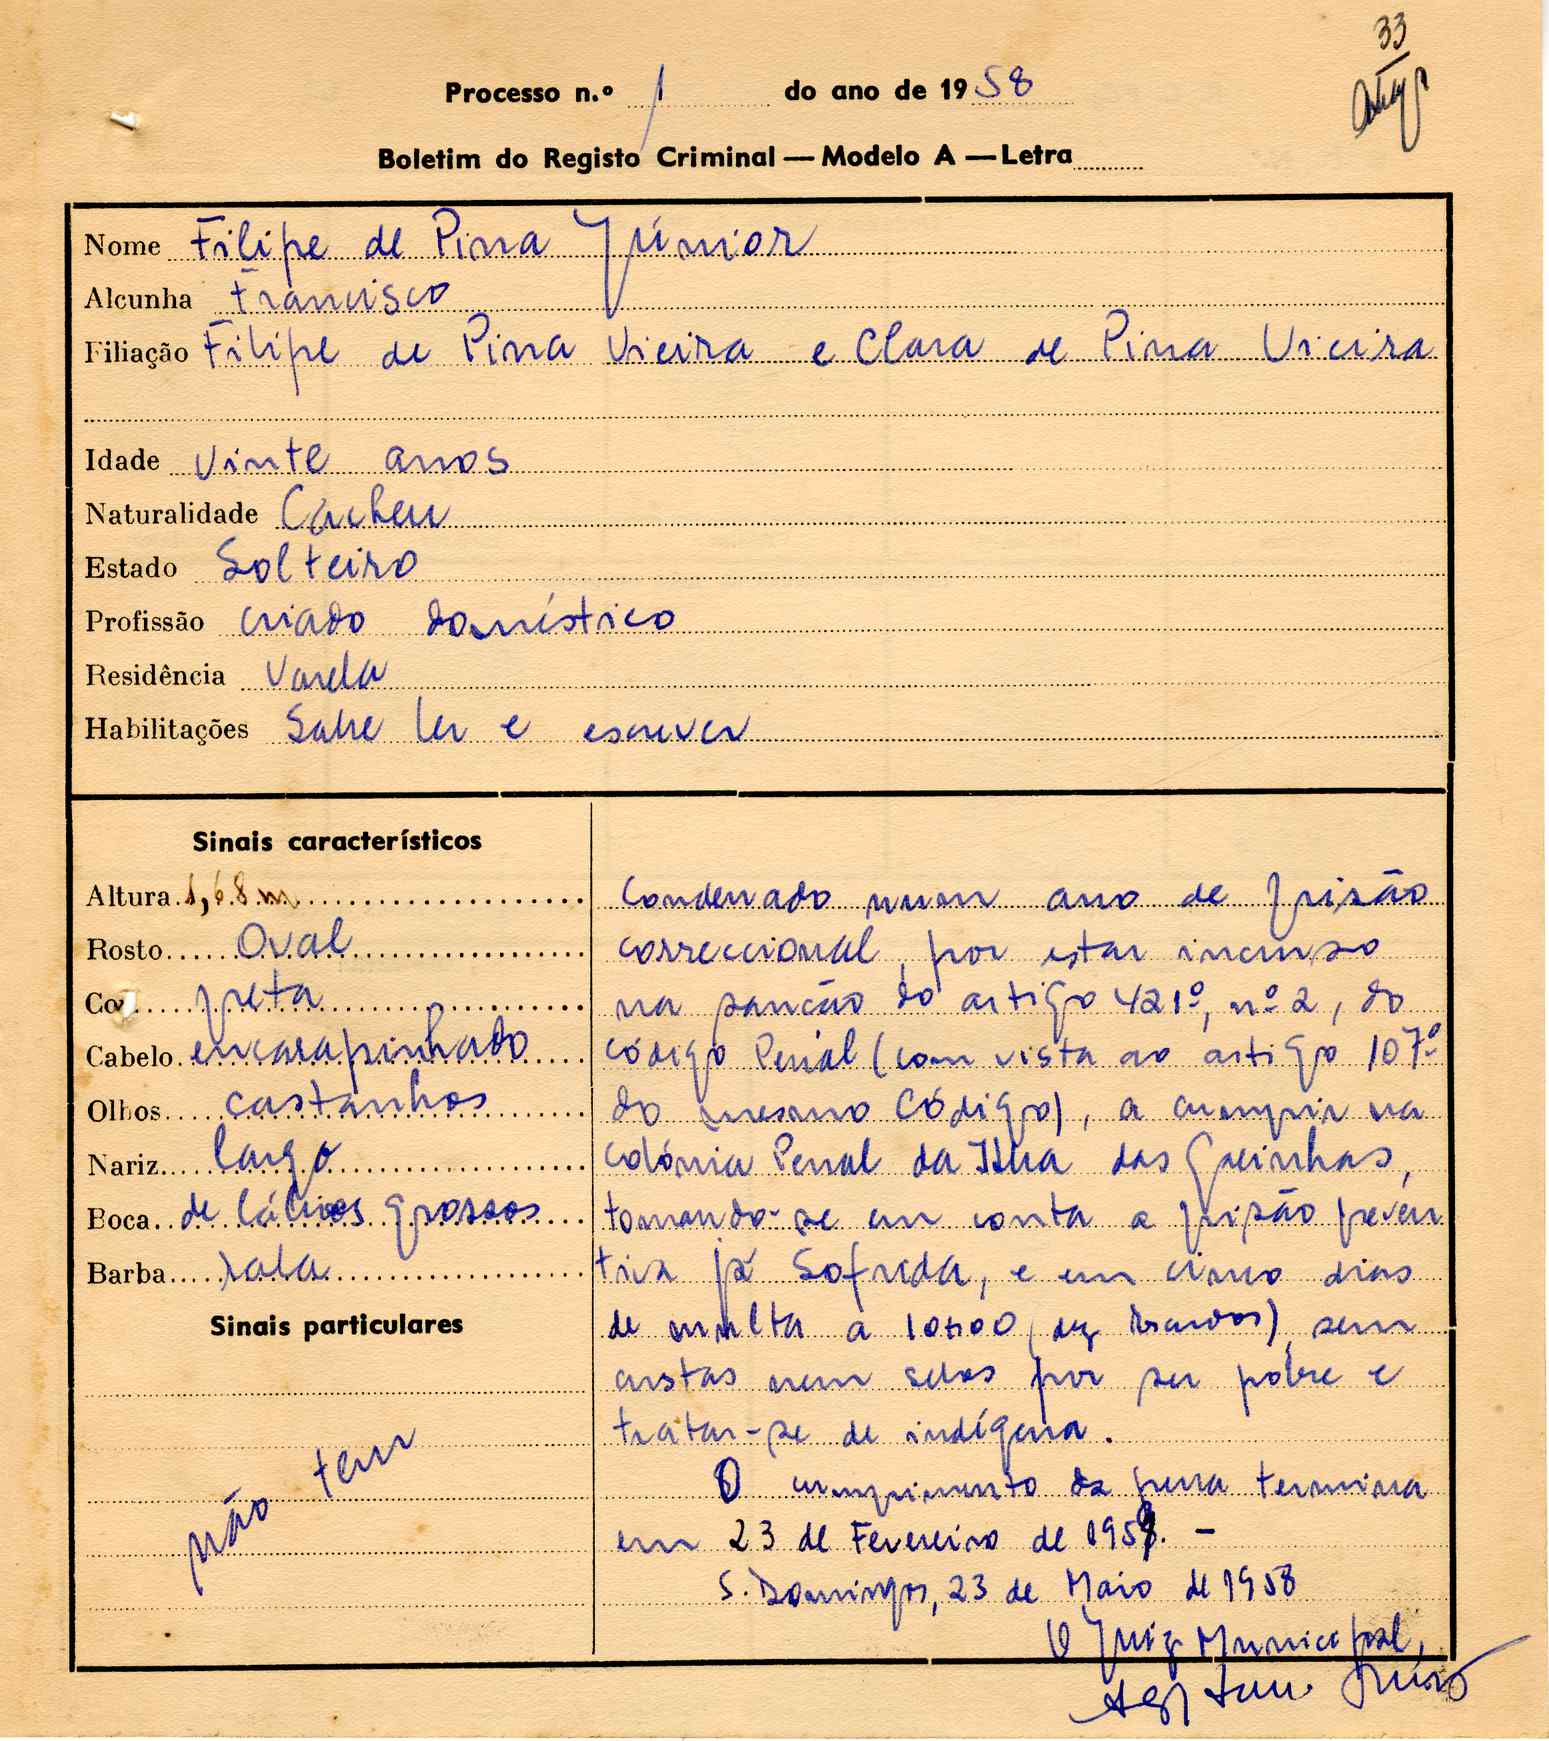 33
Processo n.º 1 do ano de 1958
Boletim do Registo Criminal — Modelo A — Letra
Nome Filipe de Pina Júnior
Alcunha Francisco
Filiação Filipe de Pina Vieira e Clara de Pina Vieira
Idade vinte anos
Naturalidade Cacheu
Estado Solteiro
Profissão criado doméstico
Residência Varela
Habilitações Sabe ler e escrever
Sinais característicos
Altura 1,68 m
Rosto Oval
Cor preta
Cabelo encarapinhado
Olhos castanhos
Nariz largo
Boca de lábios grossos
Barba rala
Sinais particulares
não tem
Condenado num ano de prisão
correccional, por estar incurso
na sanção do artigo 421º, nº 2, do
código Penal (com vista ao artigo 107º
do mesmo Código), a cumprir na
colónia Penal da Ilha das Galinhas,
tomando-se em conta a prisão preven
tiva já Sofrida, e em cinco dias
de multa a 10$00 (dez escudos), sem
custas nem selos por ser pobre e
tratar-se de indígena.
O cumprimento da pena termina
em 23 de Fevereiro de 1959. —
S. Domingos, 23 de Maio de 1958
O Juiz Municipal,